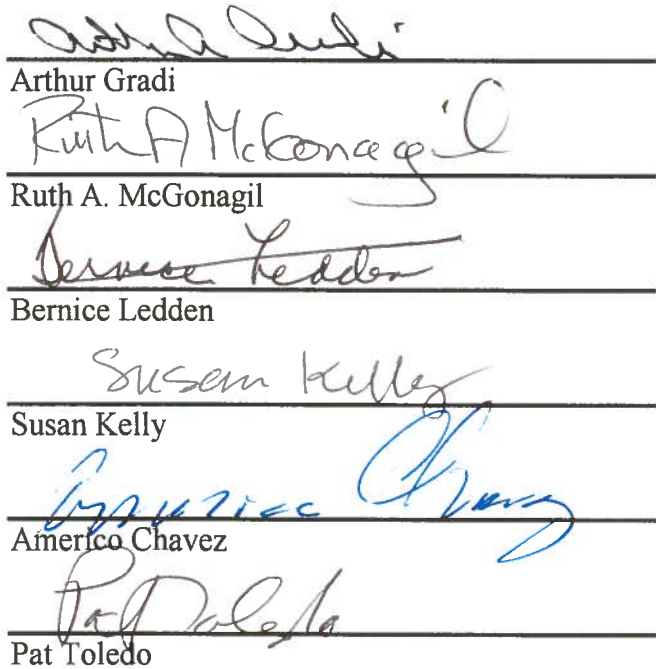 Arthur Gradi
Ruth A McGonagil
Ruth A. McGonagil
Bernice Ledden
Bernice Ledden
Susan Kelly
Susan Kelly
Americo Chavez
Americo Chavez
Pat Toledo
Pat Toledo